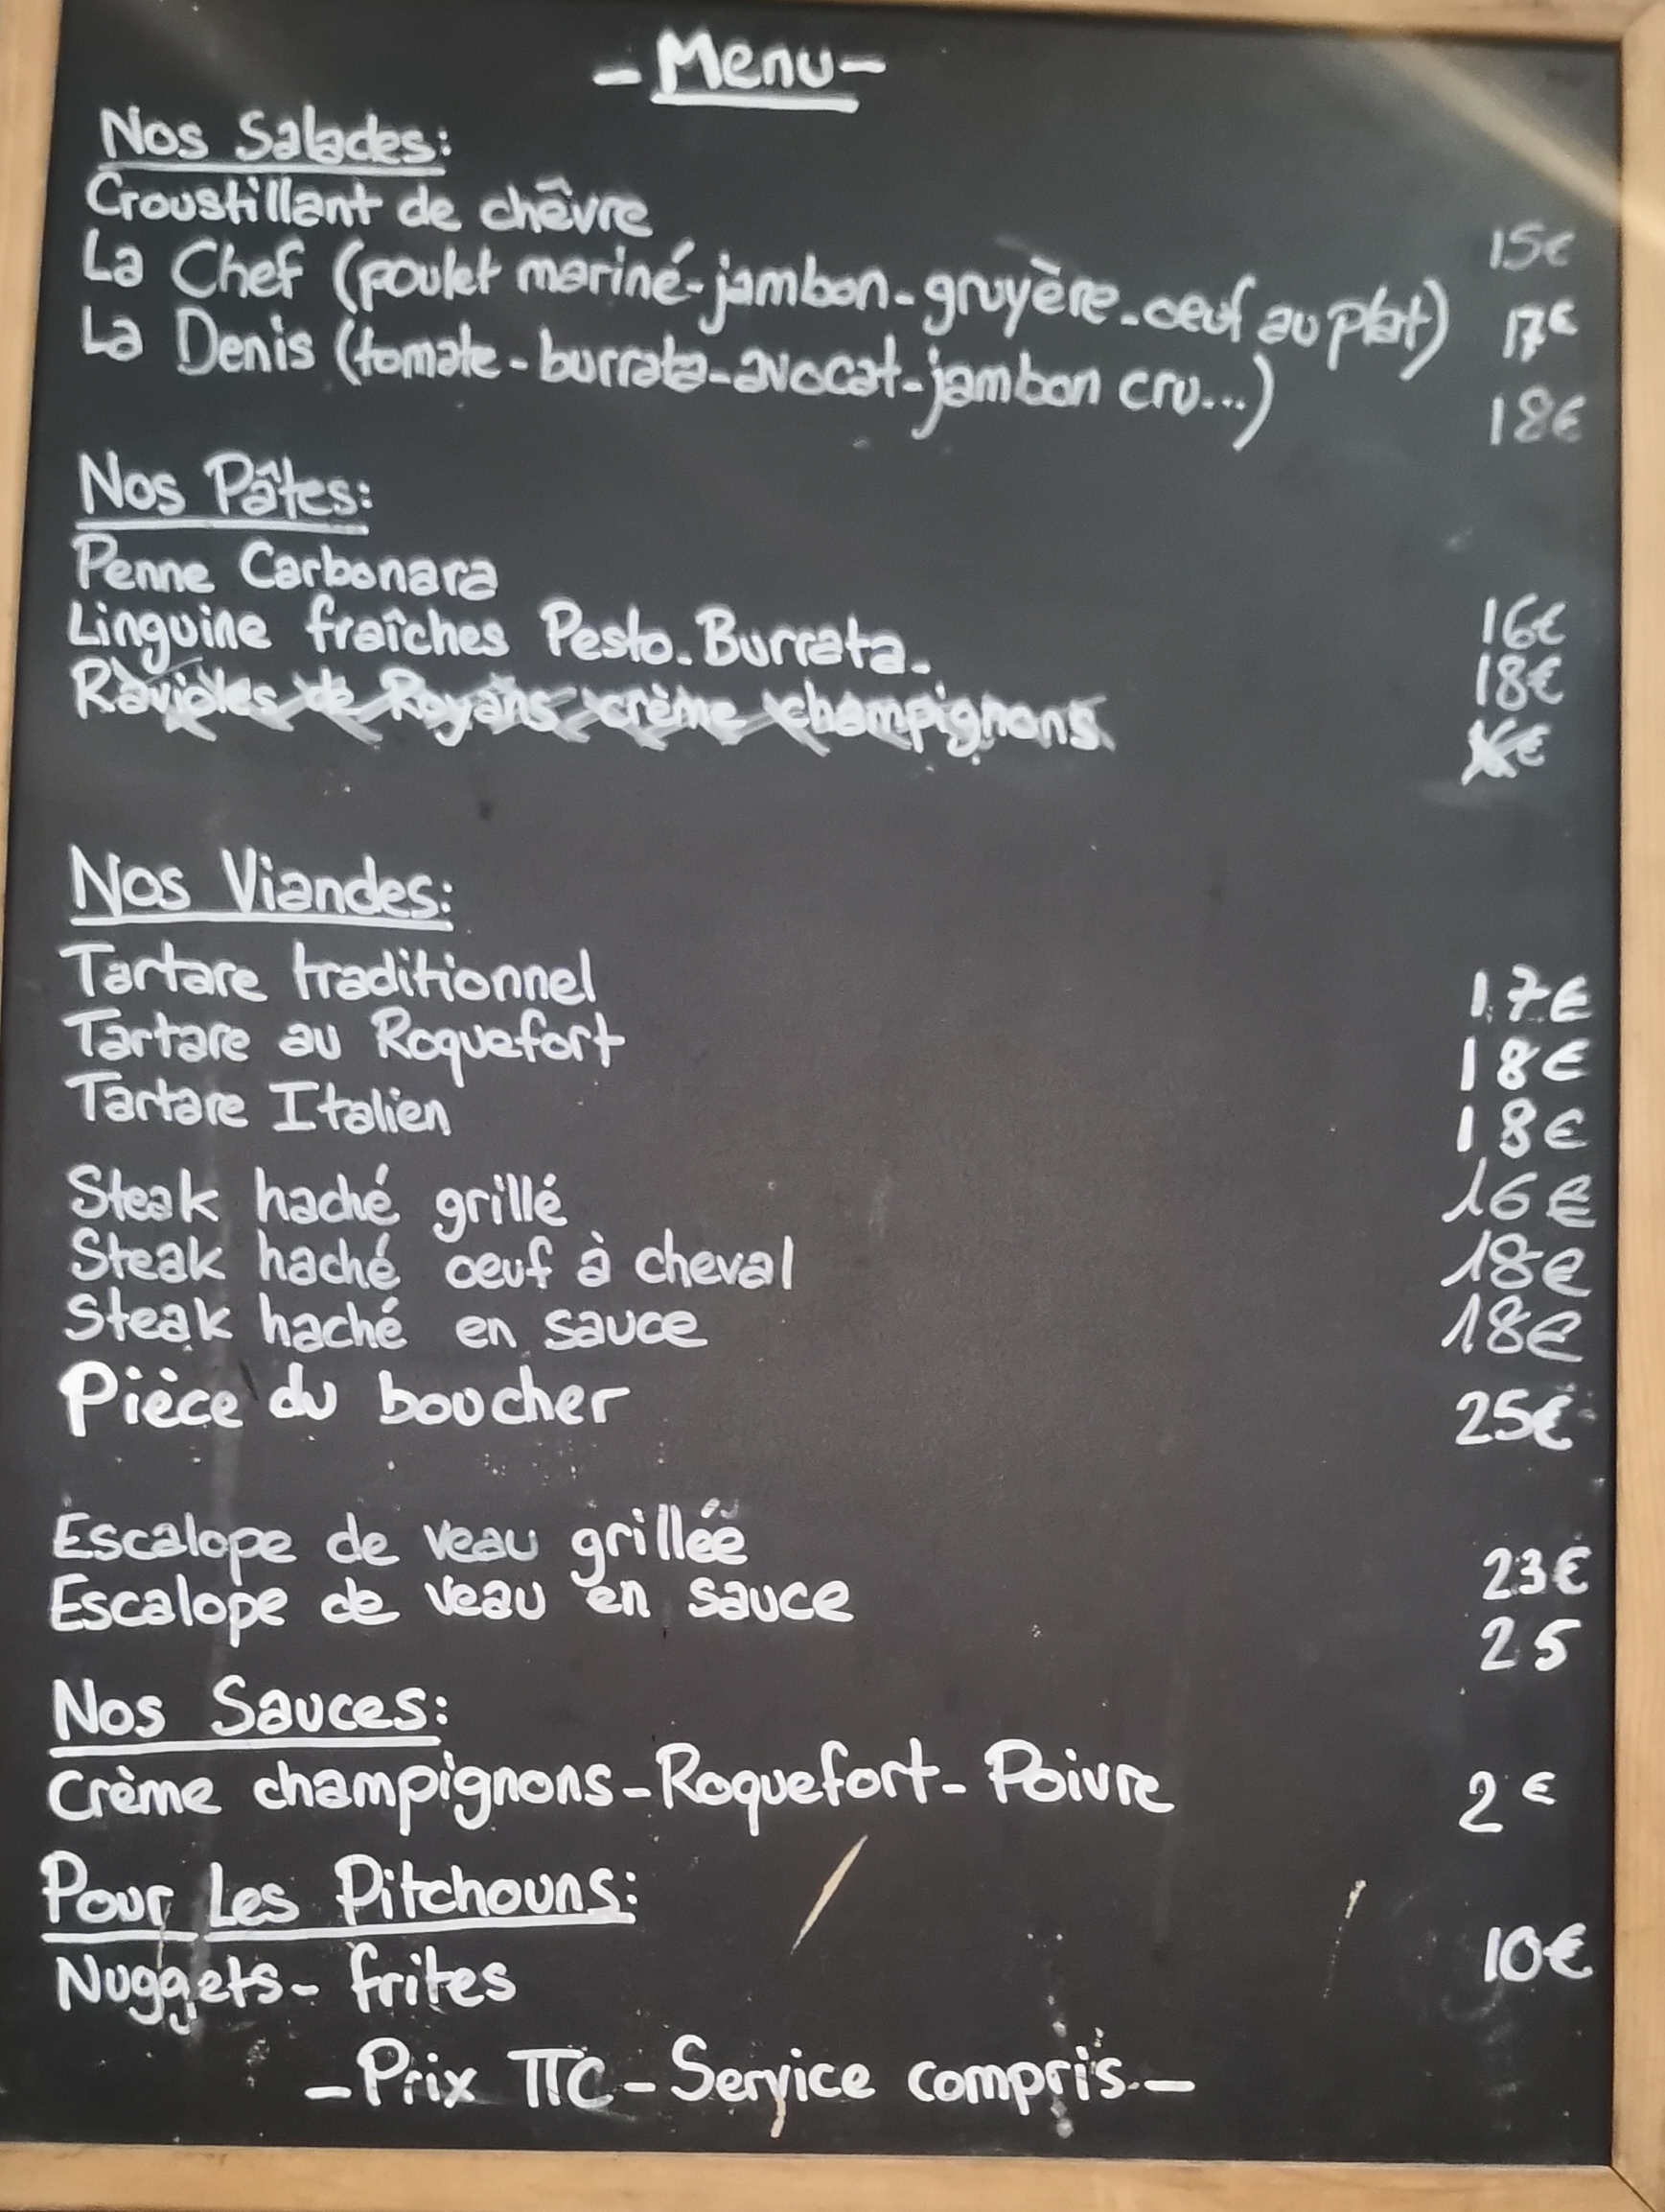 - Menu -
Nos Salades:
Croustillant de chêvre 15€
La Chef (poulet mariné-jambon-gruyère-oeuf au plat) 17€
La Denis (tomate-burrata-avocat-jambon cru...) 18€
Nos Pâtes:
Penne Carbonara 16€
Linguine fraîches Pesto-Burrata- 18€
Ravioles de Royans crème champignons €
Nos Viandes:
Tartare traditionnel 17€
Tartare au Roquefort 18€
Tartare Italien 18€
Steak haché grillé 16€
Steak haché oeuf à cheval 18€
Steak haché en sauce 18€
Pièce du boucher 25€
Escalope de veau grillée 23€
Escalope de veau en sauce 25
Nos Sauces:
Crème champignons-Roquefort-Poivre 2€
Pour Les Pitchouns:
Nuggets-frites 10€
-Prix TTC-Service compris-